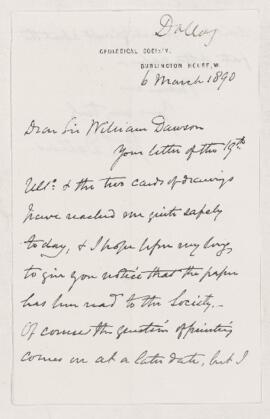 Dallas
GEOLOGICAL SOCIETY,
BURLINGTON HOUSE, W.
6 March 1890
Dear Sir William Dawson
Your letter of the 19th
Ulto. & the two cards of drawings
have reached me quite safely
today, & I hope before very long
to give you notice that the paper
has been read to the Society.
Of course the question of printing
comes on at a later date, but I